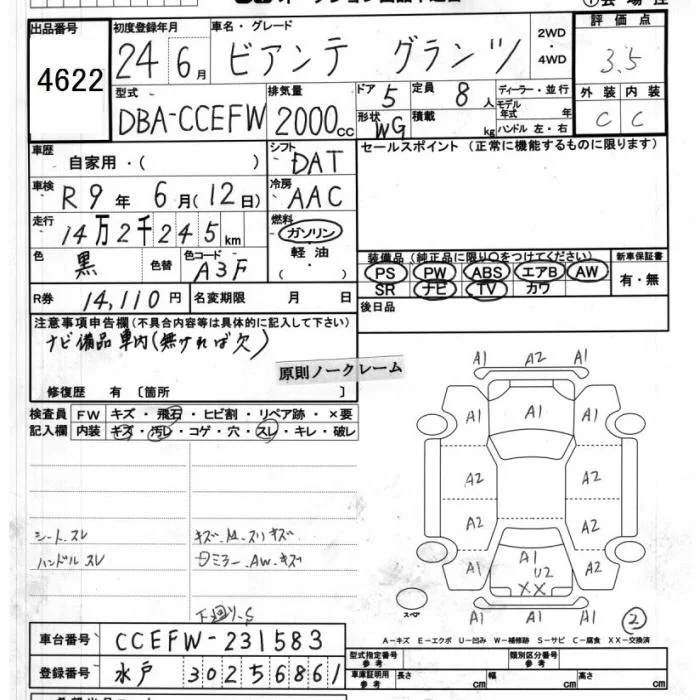 出品番号 4622
初度登録年月 24年 6月
車名・グレード ビアンテ グランツ
2WD・4WD
評価点 3.5
外装 C 内装 C
型式 DBA-CCEFW
排気量 2000cc
ドア 5 定員 8人
形状 WG 積載 kg
ディーラー・並行
モデル年式 年
ハンドル 左・右
車歴 自家用・( )
シフト DAT
セールスポイント (正常に機能するものに限ります)
車検 R9年 6月(12日)
冷房 AAC
走行 14万2千245km
燃料 ガソリン 軽油・( )
色 黒 色替 色コード A3F
装備品(純正品に限り○をつけてください) 新車保証書
PS PW ABS エアB AW 有・無
SR ナビ TV カワ
R券 14,110円 名変期限 月 日
後日品
注意事項申告欄(不具合内容等は具体的に記入して下さい)
ナビ備品車内(無ければ欠)
原則ノークレーム
修復歴 有〔箇所 〕
検査員記入欄 FW キズ・飛石・ヒビ割・リペア跡・×要
内装 キズ・汚レ・コゲ・穴・スレ・キレ・破レ
A1 A2 A1
A1 A1 A1
A2 A2
A2 A2
A1 A1 A1
U2
XX
シート.スレ
ハンドル スレ
キズ.M.スリキズ
Dミラー.AW.キズ
下廻り.S
スペア
2
A-キズ E-エクボ U-凹み W-補修跡 S-サビ C-腐食 XX-交換済
車台番号 CCEFW-231583
登録番号 水戸 302 5 6861
型式指定番号 参考 類別区分番号 参考
車庫証明用 参考 長さ cm 幅 cm 高さ cm